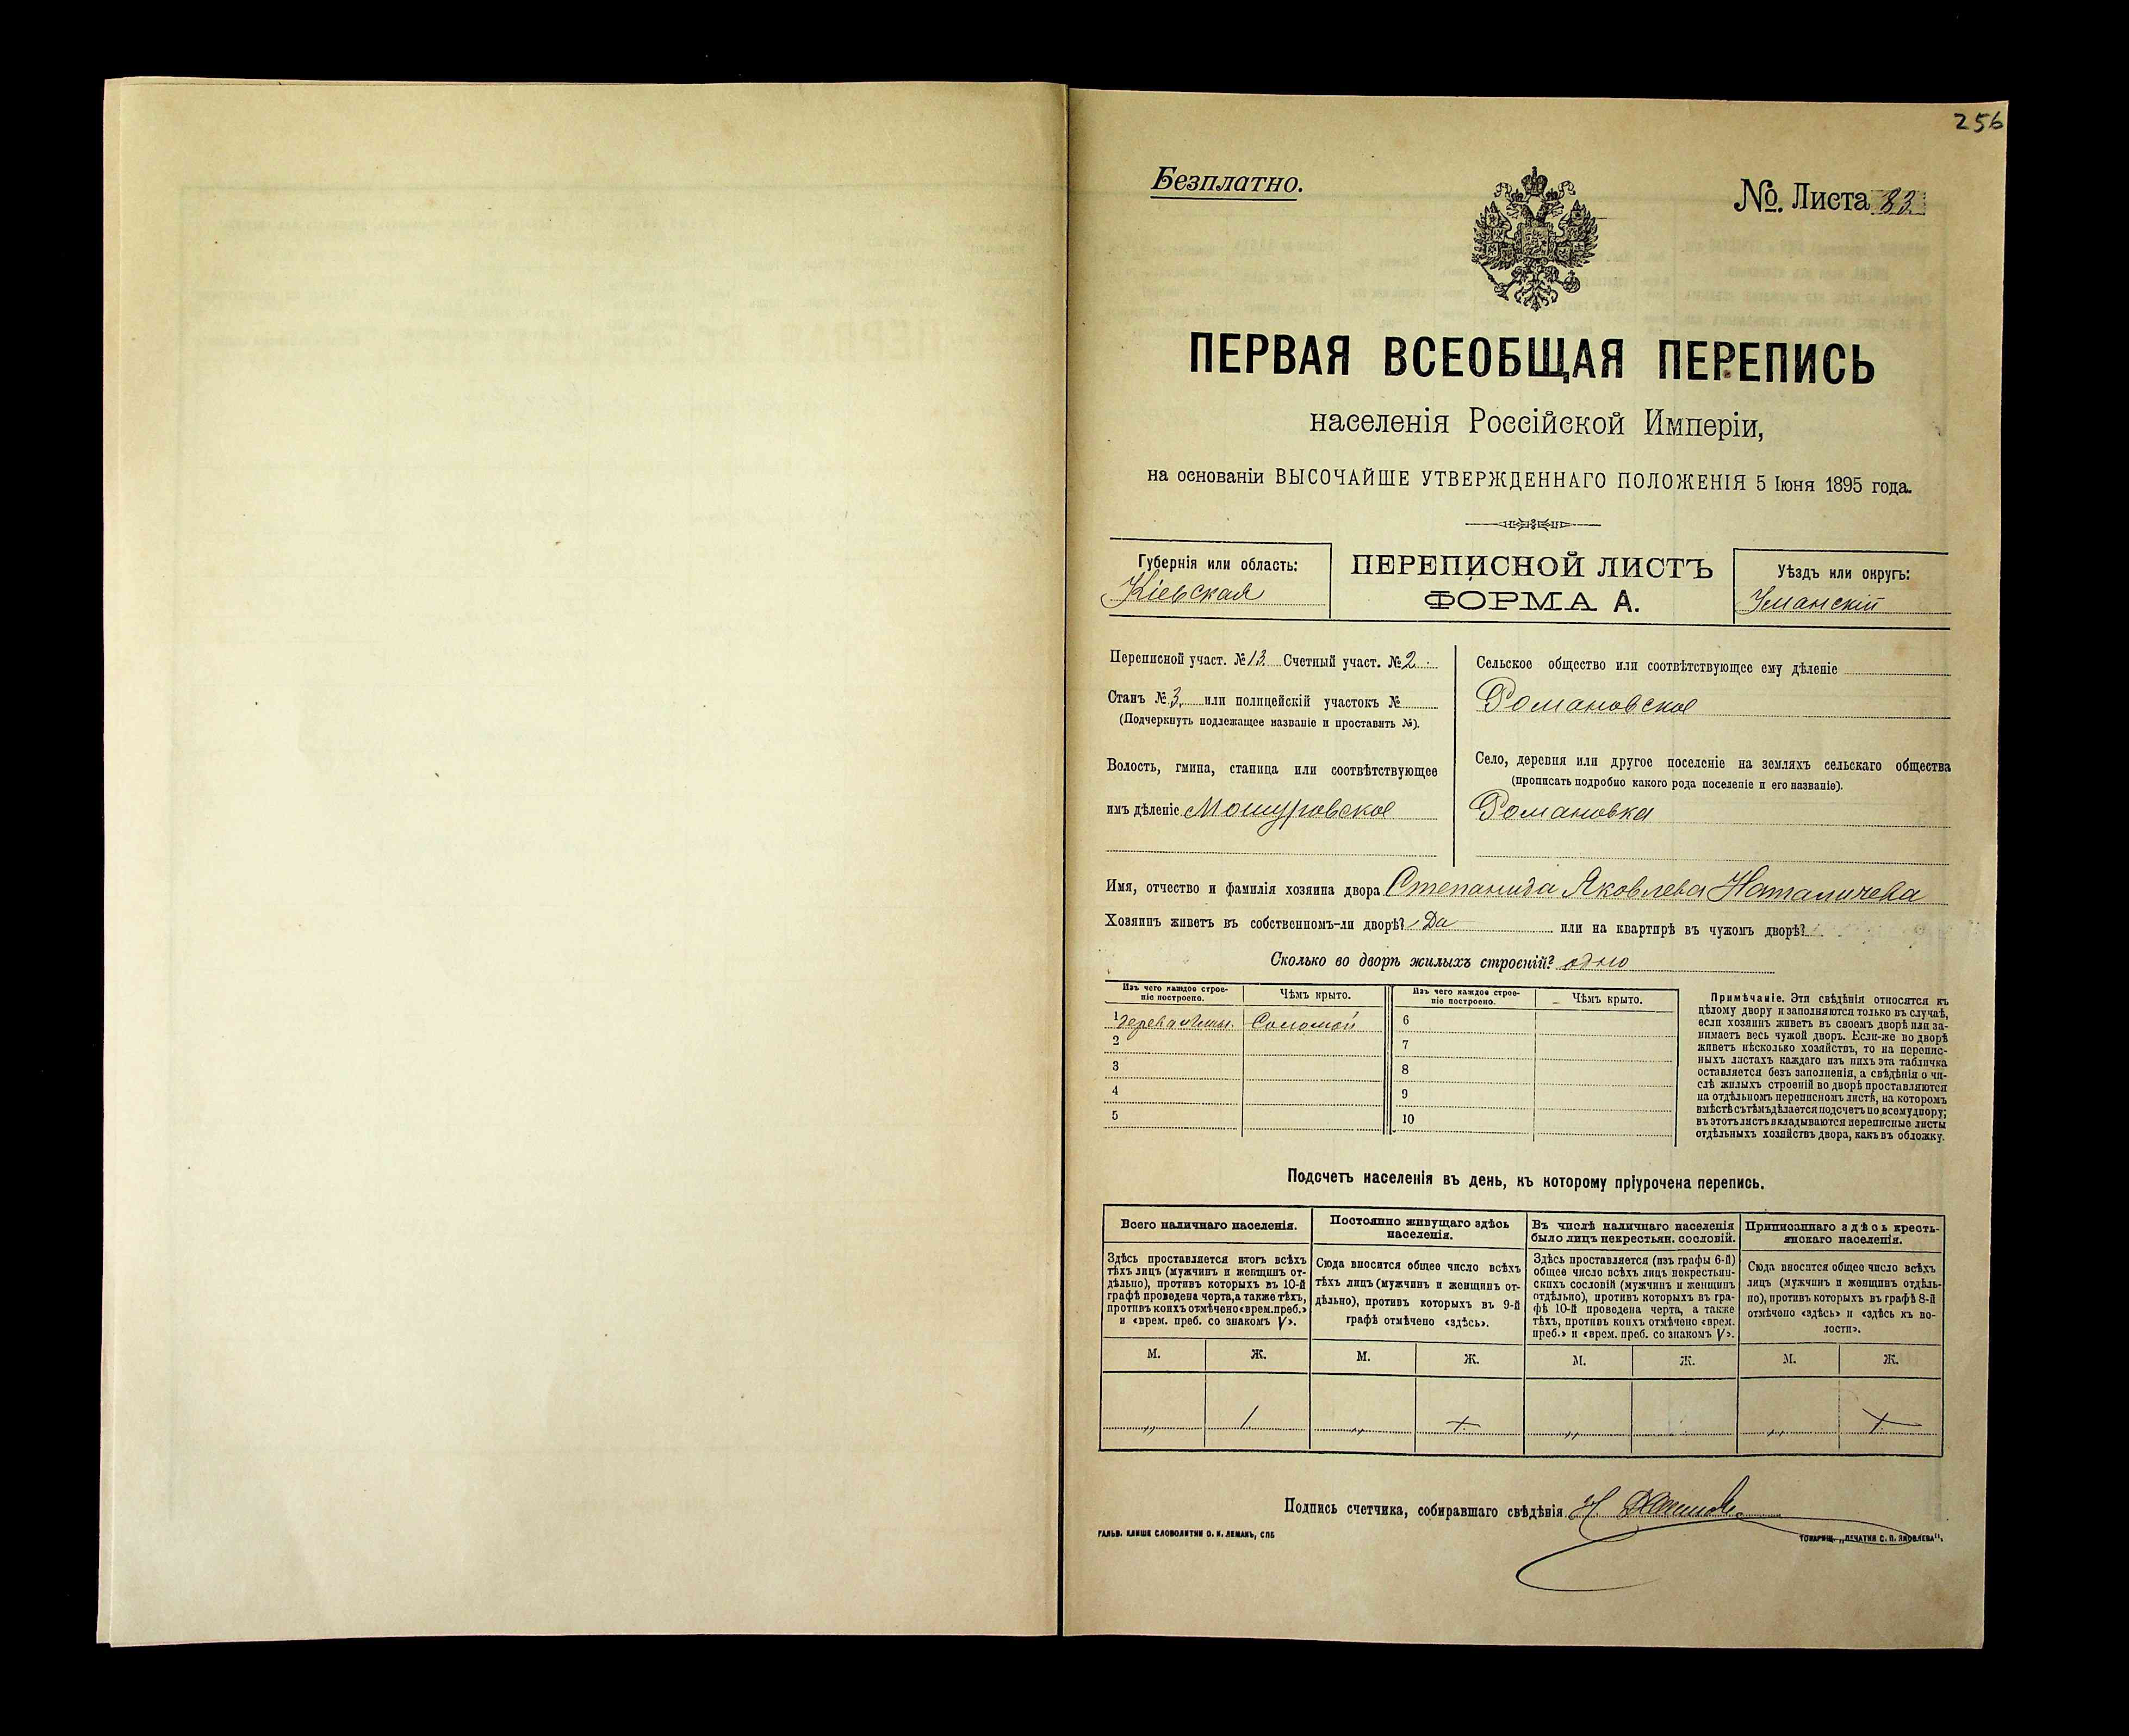 256
Безплатно.
№. Листа 83.
ПЕРВАЯ ВСЕОБЩАЯ ПЕРЕПИСЬ
населенія Россійской Имперіи,
на основаніи ВЫСОЧАЙШЕ УТВЕРЖДЕННАГО ПОЛОЖЕНІЯ 5 Іюня 1895 года.
Губернія или область:
Кіевская
ПЕРЕПИСНОЙ ЛИСТЪ
ФОРМА А.
Уѣздъ или округъ:
Уманскій
Переписной участ. № 13. Счетный участ. № 2.
Станъ № 3, или полицейскій участокъ №
(Подчеркнуть подлежащее названіе и проставить №).
Волость, гмина, станица или соотвѣтствующее
имъ дѣленіе Мошуровское
Сельское общество или соотвѣтствующее ему дѣленіе
Романовское
Село, деревня или другое поселеніе на земляхъ сельскаго общества
(прописать подробно какого рода поселеніе и его названіе).
Романовка
Имя, отчество и фамилія хозяина двора Степанида Яковлева
Хозяинъ живетъ въ собственномъ-ли дворѣ? Да или на квартирѣ въ чужомъ дворѣ?
Сколько во дворѣ жилыхъ строеній? одно
Изъ чего каждое строе-
ніе построено.
Чѣмъ крыто.
Изъ чего каждое строе-
ніе построено.
Чѣмъ крыто.
1 Соломой
2
3
4
5
6
7
8
9
10
Примѣчаніе. Эти свѣдѣнія относятся къ
цѣлому двору и заполняются только въ случаѣ,
если хозяинъ живетъ въ своемъ дворѣ или за-
нимаетъ весь чужой дворъ. Если-же во дворѣ
живетъ нѣсколько хозяйствъ, то на перепис-
ныхъ листахъ каждаго изъ нихъ эта табличка
оставляется безъ заполненія, а свѣдѣнія о чи-
слѣ жилыхъ строеній во дворѣ проставляются
на отдѣльномъ переписномъ листѣ, на которомъ
вмѣстѣ съ тѣмъ дѣлается подсчетъ по всему двору;
въ этотъ листъ вкладываются переписные листы
отдѣльныхъ хозяйствъ двора, какъ въ обложку.
Подсчетъ населенія въ день, къ которому пріурочена перепись.
Всего наличнаго населенія.
Здѣсь проставляется итогъ всѣхъ
тѣхъ лицъ (мужчинъ и женщинъ от-
дѣльно), противъ которыхъ въ 10-й
графѣ проведена черта, а также тѣхъ,
противъ коихъ отмѣчено «врем. преб.»
и «врем. преб. со знакомъ V».
Постоянно живущаго здѣсь
населенія.
Сюда вносится общее число всѣхъ
тѣхъ лицъ (мужчинъ и женщинъ от-
дѣльно), противъ которыхъ въ 9-й
графѣ отмѣчено «здѣсь».
Въ числѣ наличнаго населенія
было лицъ некрестьян. сословій.
Здѣсь проставляется (изъ графы 6-й)
общее число всѣхъ лицъ некрестьян-
скихъ сословій (мужчинъ и женщинъ
отдѣльно), противъ которыхъ въ гра-
фѣ 10-й проведена черта, а также
тѣхъ, противъ коихъ отмѣчено «врем.
преб.» и «врем. преб. со знакомъ V».
Приписаннаго здѣсь кресть-
янскаго населенія.
Сюда вносится общее число всѣхъ
лицъ (мужчинъ и женщинъ отдѣль-
но), противъ которыхъ въ графѣ 8-й
отмѣчено «здѣсь» и «здѣсь къ во-
лости».
М. Ж. М. Ж. М. Ж. М. Ж.
„ 1 „ 1 „ „ 1
Подпись счетчика, собиравшаго свѣдѣнія
ГАЛЬВ. КЛИШЕ СЛОВОЛИТНИ О. И. ЛЕМАНЪ, СПБ
ТОВАРИЩ. „ПЕЧАТНЯ С. П. ЯКОВЛЕВА“.